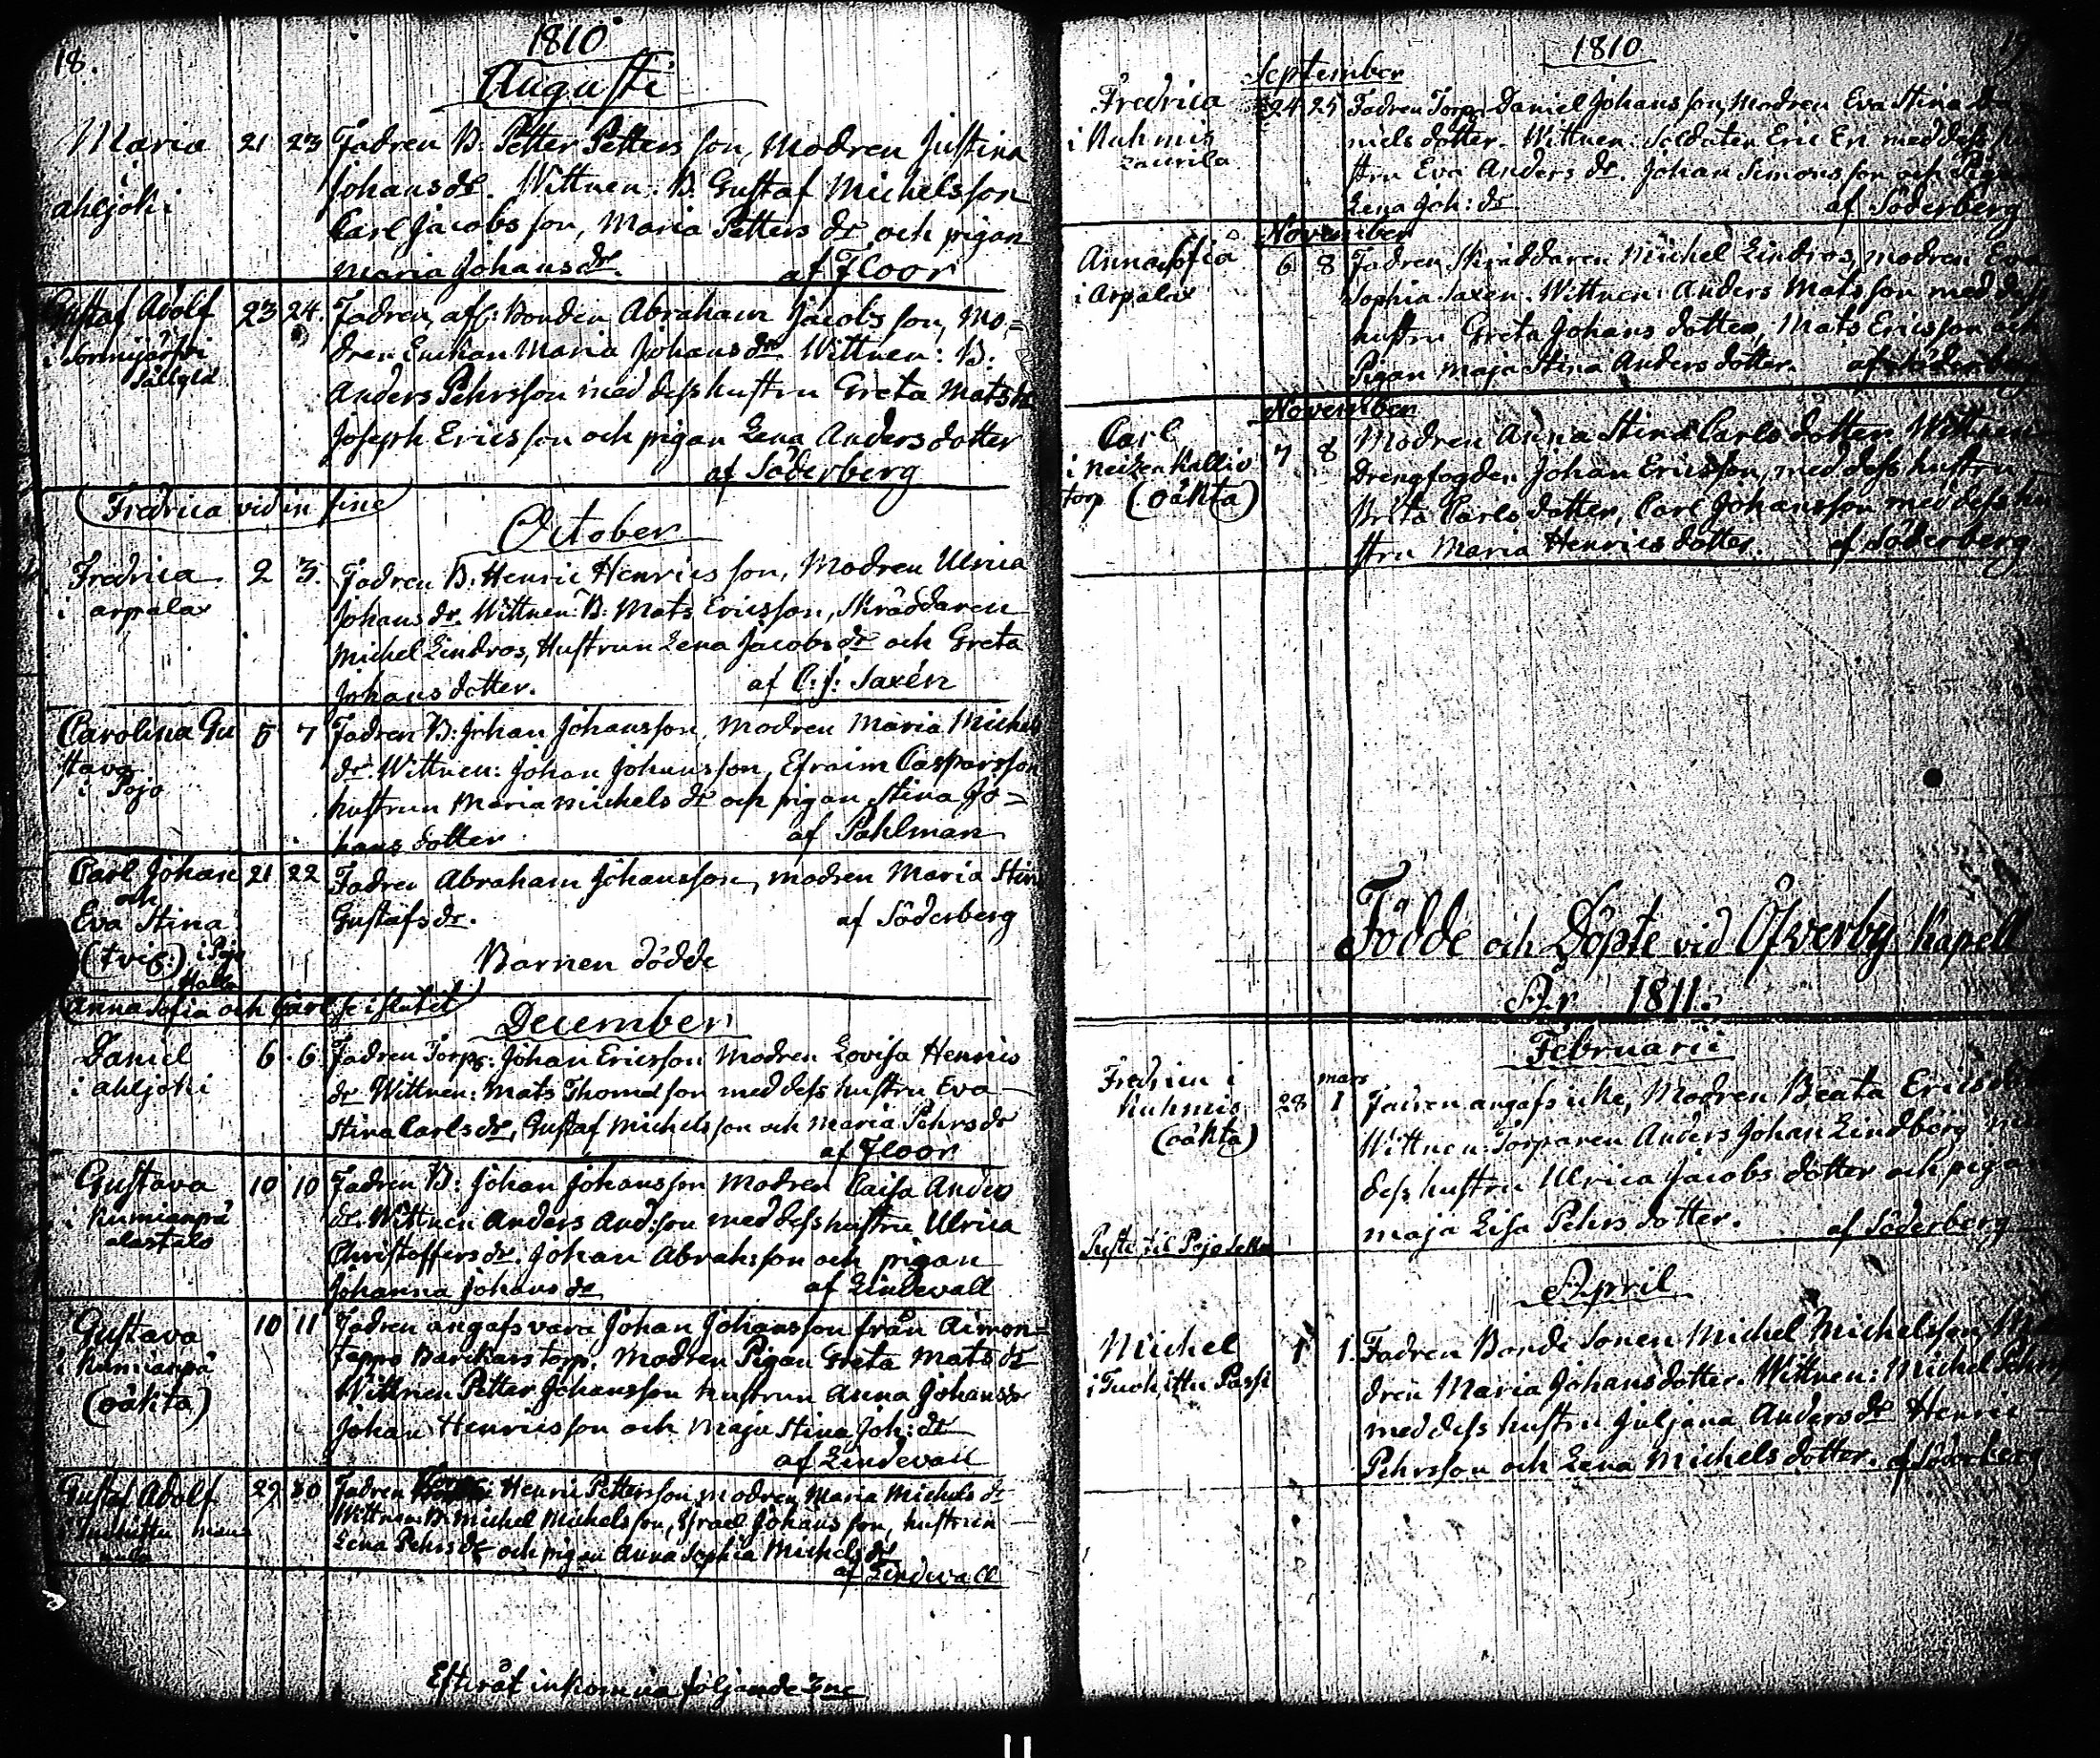 18.
1810
Augusti
Maria
i
ahljoki
21 23
Fadren B: Petter Petters son, Modren Justina
Johans dr. Wittnen: B. Gustaf Michelsson
Carl Jacobs son, Maria Petters dr och pigan
Maria Johans dr. af Floor
Gustaf Adolf
i Sormijärfvi
23 24.
Fadren, afl: Bonden Abraham Jacobs son, Mo=
dren Enkan Maria Johans dr Wittnen: B:
Anders Pehrsson med dess hustru Greta Mats dr
Joseph Ericsson och pigan Lena Anders dotter
af Söderberg
Fredrica vid in fine
October
Fredrica
i arpalax
2 3.
Fadren B: Henric Henrics son, Modren Ulrica
Johans dr. Wittnen: B: Mats Ericsson, Skräddaren
Michel Lindros, Hustrun Lena Jacobs dr och Greta
Johans dotter. af C: J: Saxén
Carolina Gu
stava
i Pojo
5 7
Fadren B: Johan Johansson, Modren Maria Michels
dr. Wittnen: Johan Johansson, Efraim Casparsson
hustrun Maria Michels dr och pigan Stina Jo=
hans dotter af Pahlman
Carl Johan
och
Eva Stina
(tvil:) i Pojo
21 22
Fadren Abraham Johansson, modren Maria Stina
Gustafs dr. af Söderberg
Barnen dödde
Anna Sofia och Carl se i slutet
December
Daniel
i ahljoki
6 6
Fadren Torp: Johan Ericsson Modren Lovisa Henrics
dr Wittnen: Mats Thomesson med dess hustru Eva
Stina Carls dr, Gustaf Michelsson och Maria Pehrs dr
af Floor
Gustava
i Kumianpä
alastalo
10 10
Fadren B: Johan Johansson Modren Caisa Anders
dr. Wittnen Anders And:son med dess hustru Ulrica
Christoffers dr. Johan Abrahsson och pigan
Johanna Johans dr af Lindevall
Gustava
i Kumianpä
(oäkta)
10 11
Fadren angafs vara Johan Johansson från Aimon=
tappo Barckars torp. Modren Pigan Greta Mats dr
Wittnen Petter Johansson hustrun Anna Johans dr
Johan Henricsson och Maja Stina Joh: dr
af Lindevall
Gustaf Adolf
29 30
Fadren Henric Pettersson, modren Maria Michels dr
Wittnen B: Michel Michelsson, Israel Johans son, hustrun
Lena Pehrs dr och pigan Anna Sophia Michels dr
af Lindevall
Efteråt inkomna följande
1810
September
Fredrica
i Kuhmis
Laurila
24 25
Fadren Torp: Daniel Johansson, Modren Eva Stina Da
niels dotter. Wittnen: Soldaten Eric Eri med dess hu
stru Eva Anders dr. Johan Simonsson och Pigan
Lena Joh: dr af Söderberg
November
Anna Sofia
i Arpalax
6 8
Fadren Skräddaren Michel Lindros, modren Eva
Sophia Saxen. Wittnen: Anders Matsson med dess
hustru Greta Johans dotter, Mats Ericsson och
Pigan Maja Stina Anders dotter. af Söderberg
November
Carl
torp (oäkta)
7 8
Modren Anna Stina Carls dotter. Wittnen
Drengfogden Johan Ericsson, med dess hustru
Brita Carls dotter, Carl Johansson med dess hu
stru Maria Henrics dotter. af Söderberg
Födde och Döpte vid Öfverby Kapell
År 1811.
Februarii
Fredrica i
Kuhmis
(oäkta)
mars
28 1
Fadren angafs icke, Modren Beata Erics dr
Wittnen: Torparen Anders Johan Lindberg med
dess hustru Ulrica Jacobs dotter och pigan
Maja Lisa Pehrs dotter. af Söderberg
April
Michel
i Tuohittu Passi
1 1.
Fadren Bonde Sonen Michel Michelsson, Mo
dren Maria Johans dotter. Wittnen: Michel Pehrs
med dess hustru Juljana Anders dr Henric
Pehrsson och Lena Michels dotter. af Söderberg